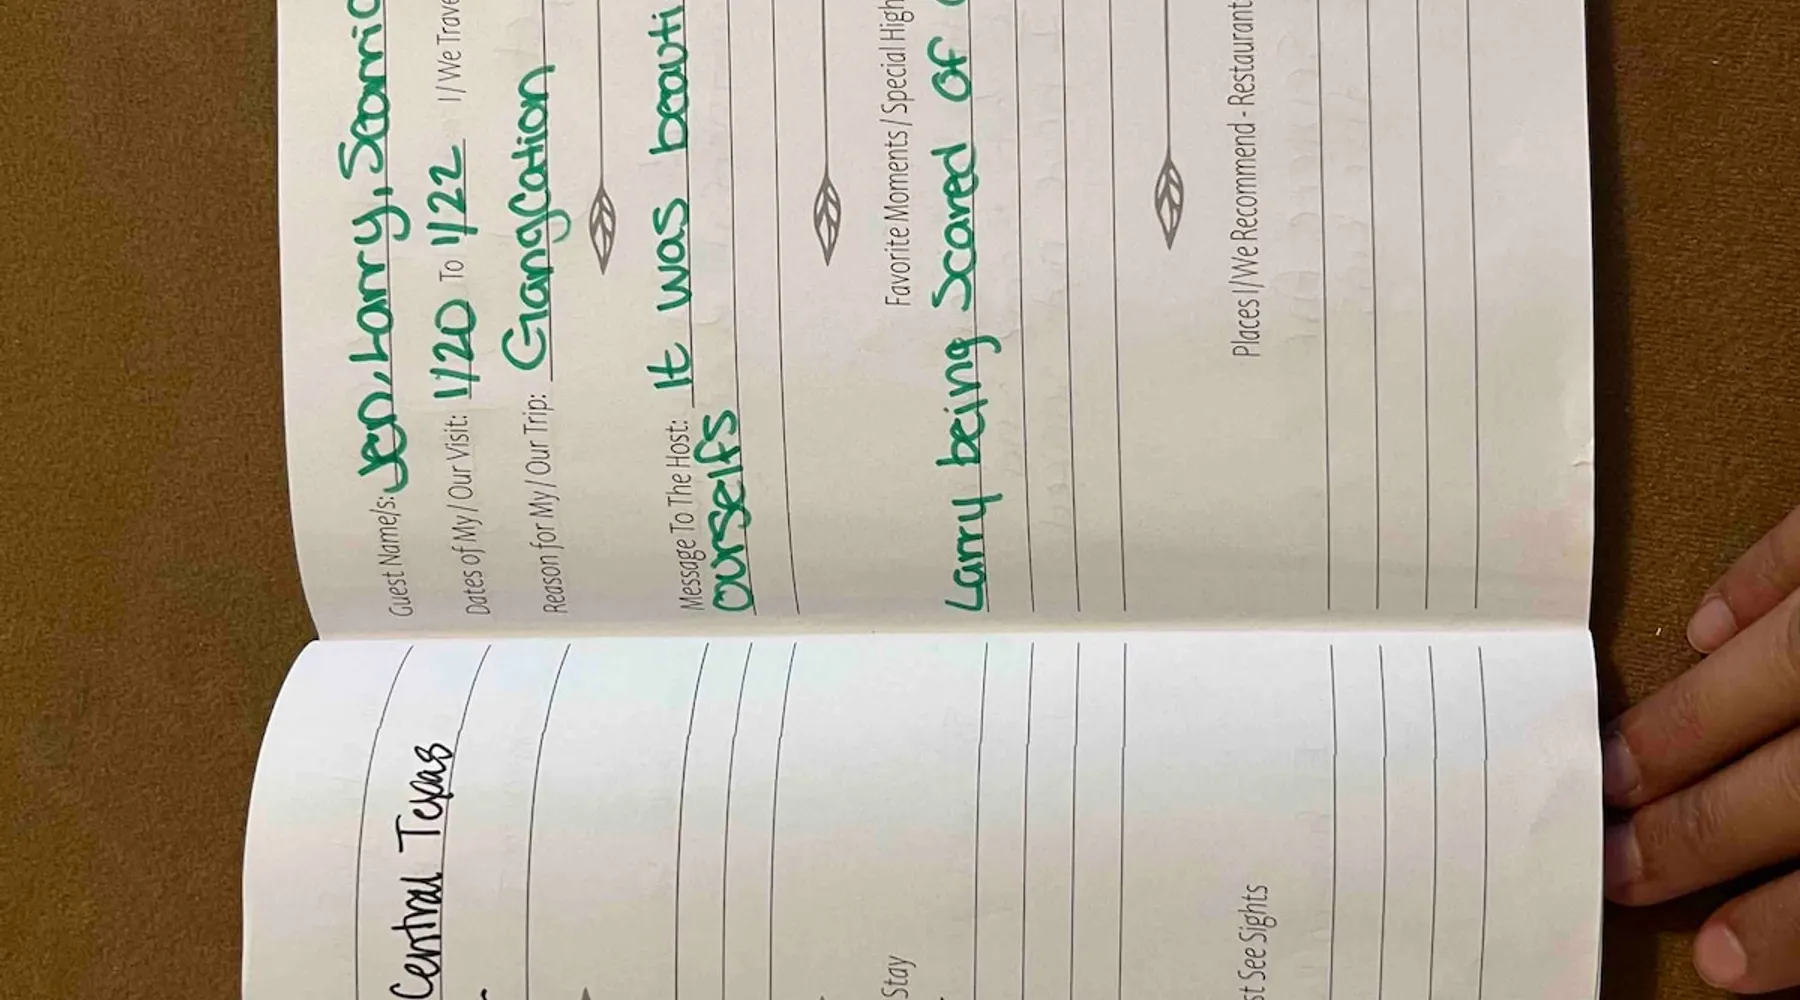 Guest Name/s: Jen, Larry,
Dates of My / Our Visit: 1/20 To 1/22 I / We
Reason for My / Our Trip: Gangcation
Message To The Host: It was
ourselfs
Favorite Moments / Special
Larry being Scared of
Places I / We Recommend - Restaurant
Central Texas
Stay
See Sights